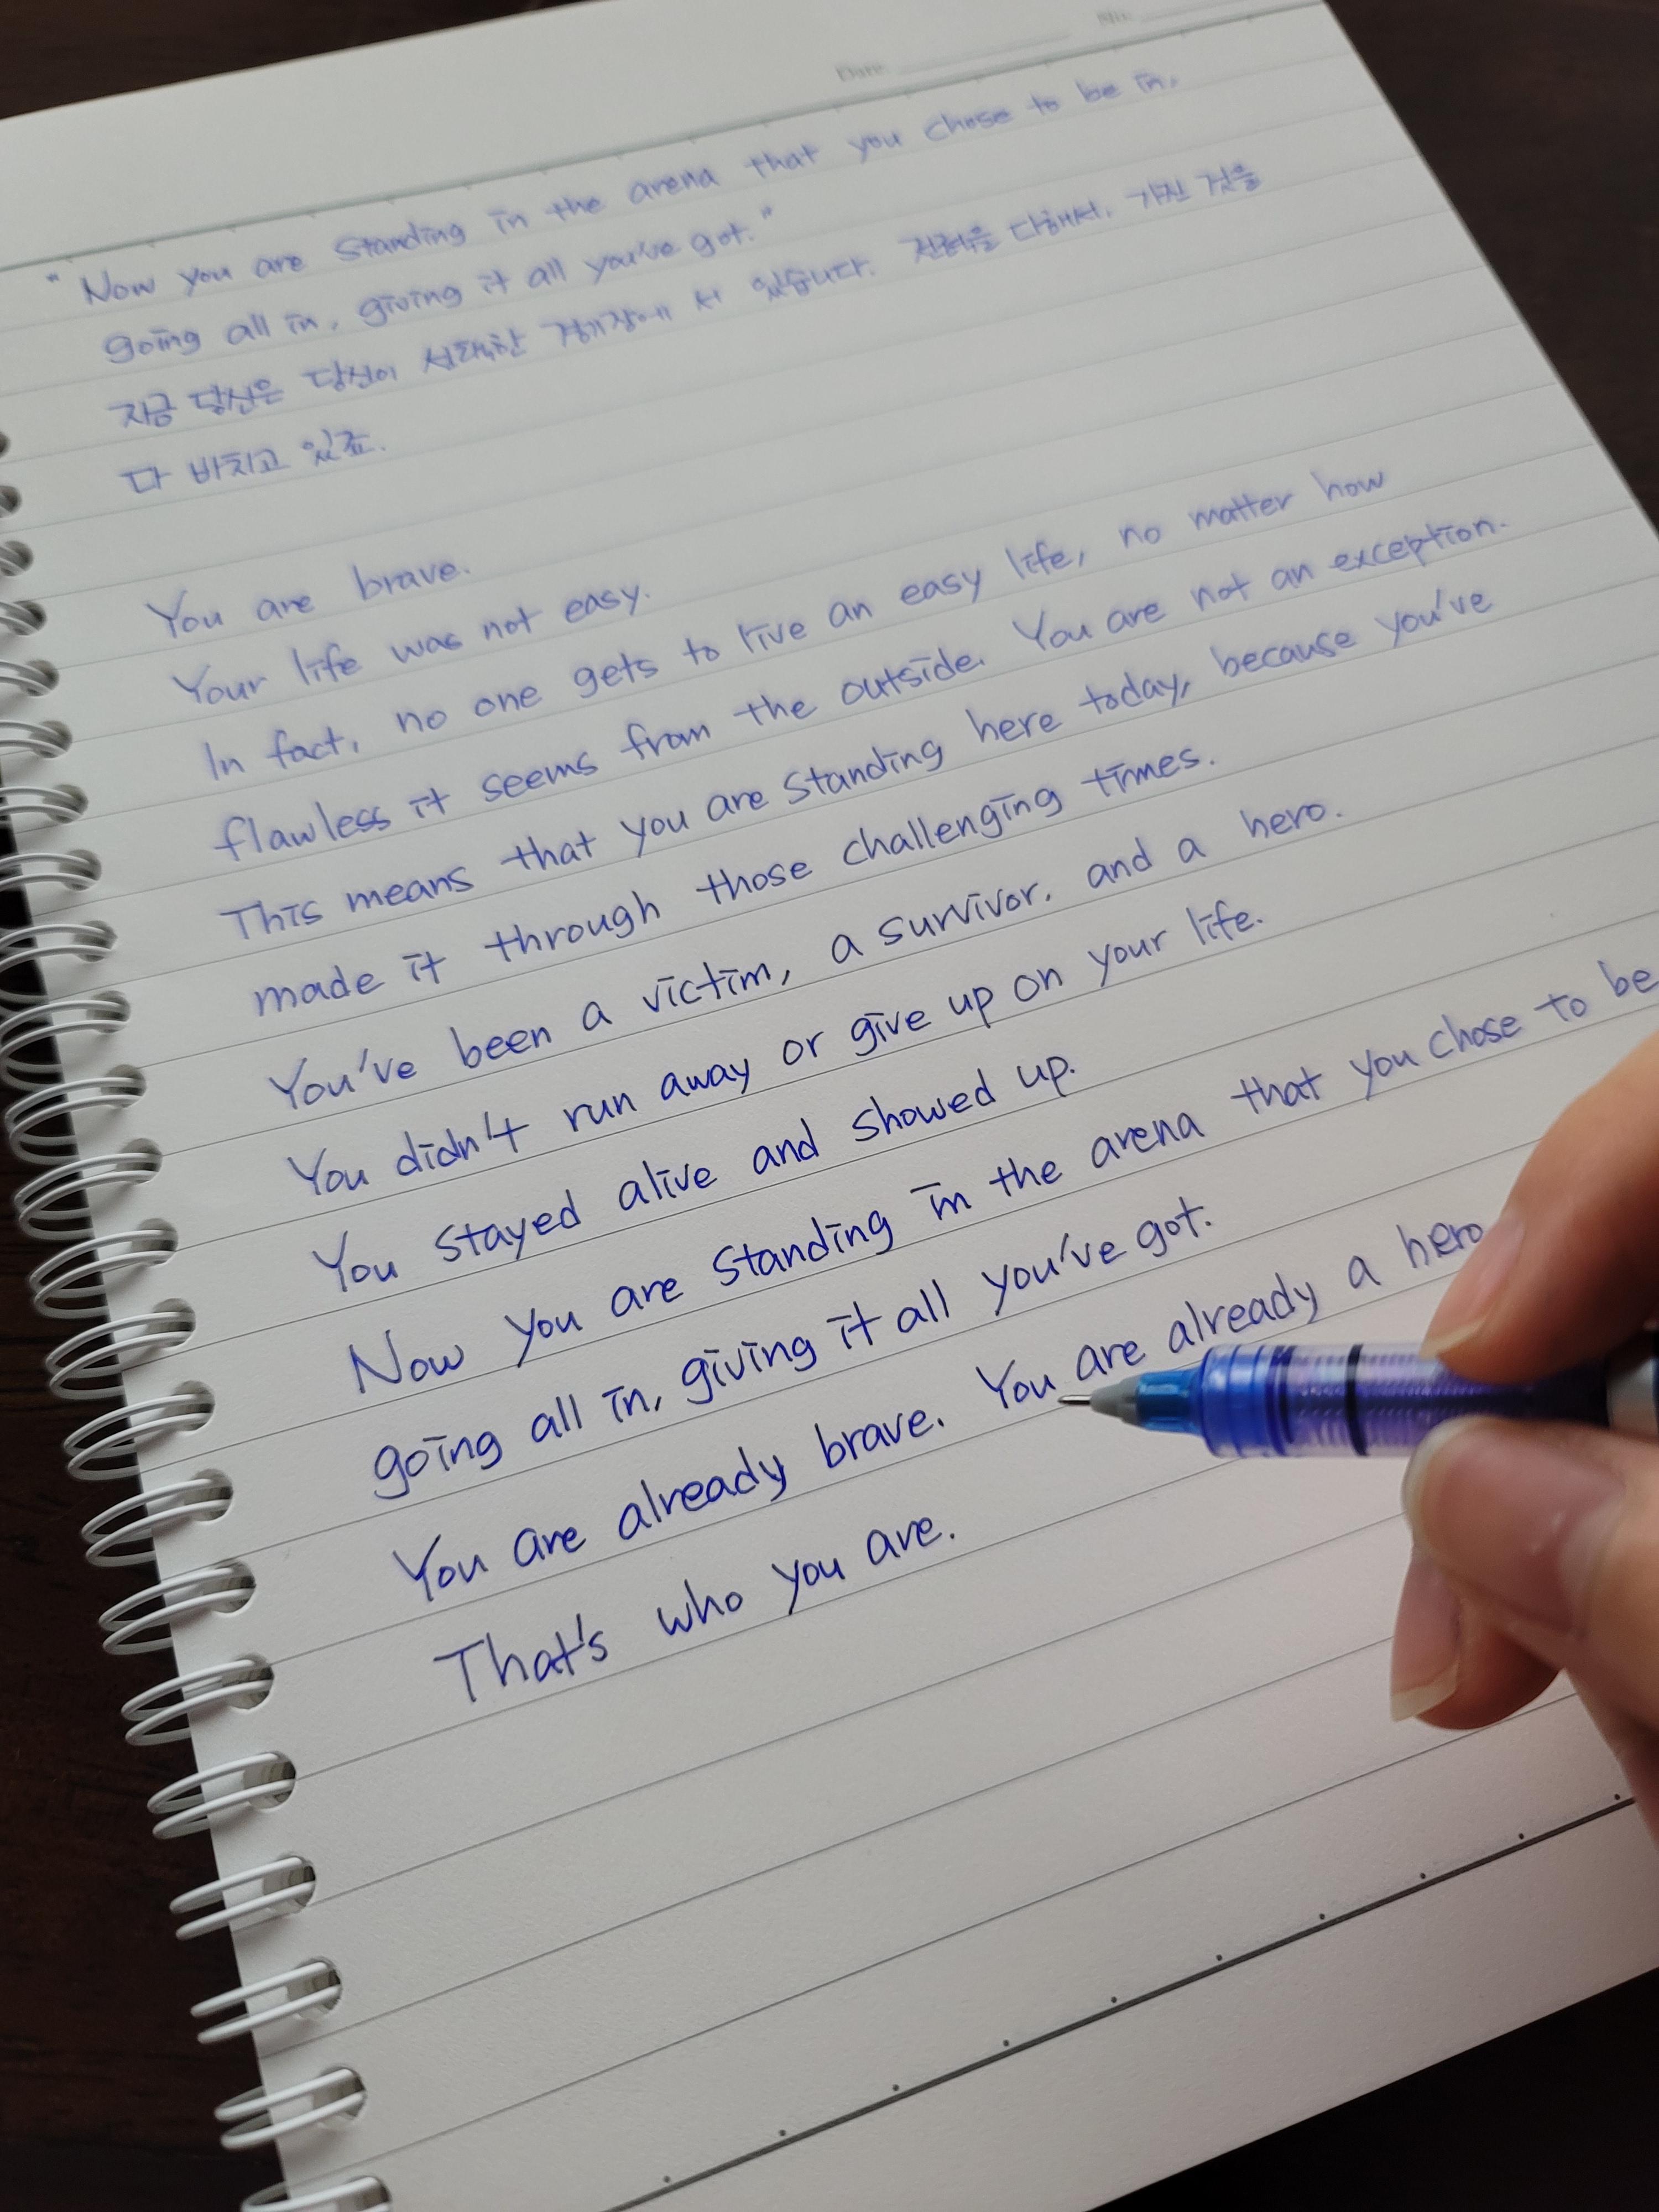 Date
" Now you are standing in the arena that you chose to be in,
going all in, giving it all you've got. "
지금 당신은 당신이 선택한 경기장에 서 있습니다. 전력을 다해서, 가진 것을
다 바치고 있죠.
You are brave.
Your life was not easy.
In fact, no one gets to live an easy life, no matter how
flawless it seems from the outside. You are not an exception.
This means that you are standing here today, because you've
made it through those challenging times.
You've been a victim, a survivor, and a hero.
You didn't run away or give up on your life.
You stayed alive and showed up.
Now you are standing in the arena that you chose to be
going all in, giving it all you've got.
You are already brave. You are already a hero
That's who you are.